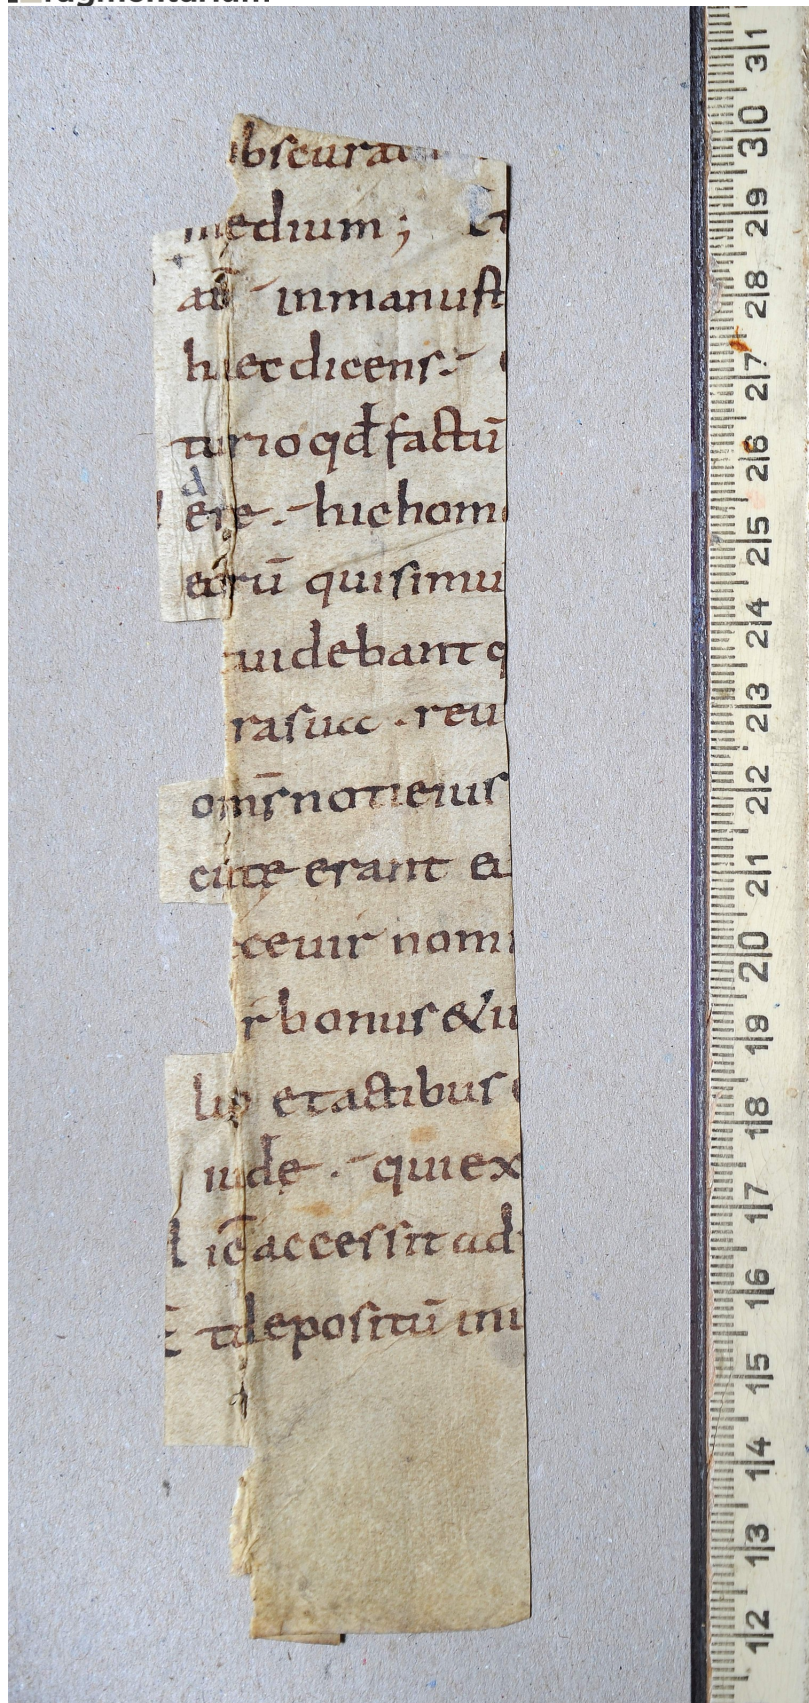 obscurat
medium; Et
aū inmanust
haec dicens.
turio qđ factū
ere. hic homo
eorū quisimu
uidebant q
rasua. reu
oms̄ notieius
cutę erant ea
ceuir nomi
r bonus & iu
lio et actibus
iudę. quiex
ic̄ accessit ad
Et depositū inu
31
30
29
28
27
26
25
24
23
22
21
20
19
18
17
16
15
14
13
12